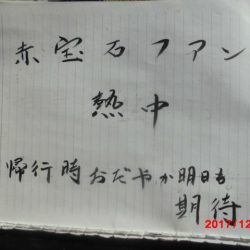 赤宝石ファン
熱中
帰行時おだやか明日も
期待